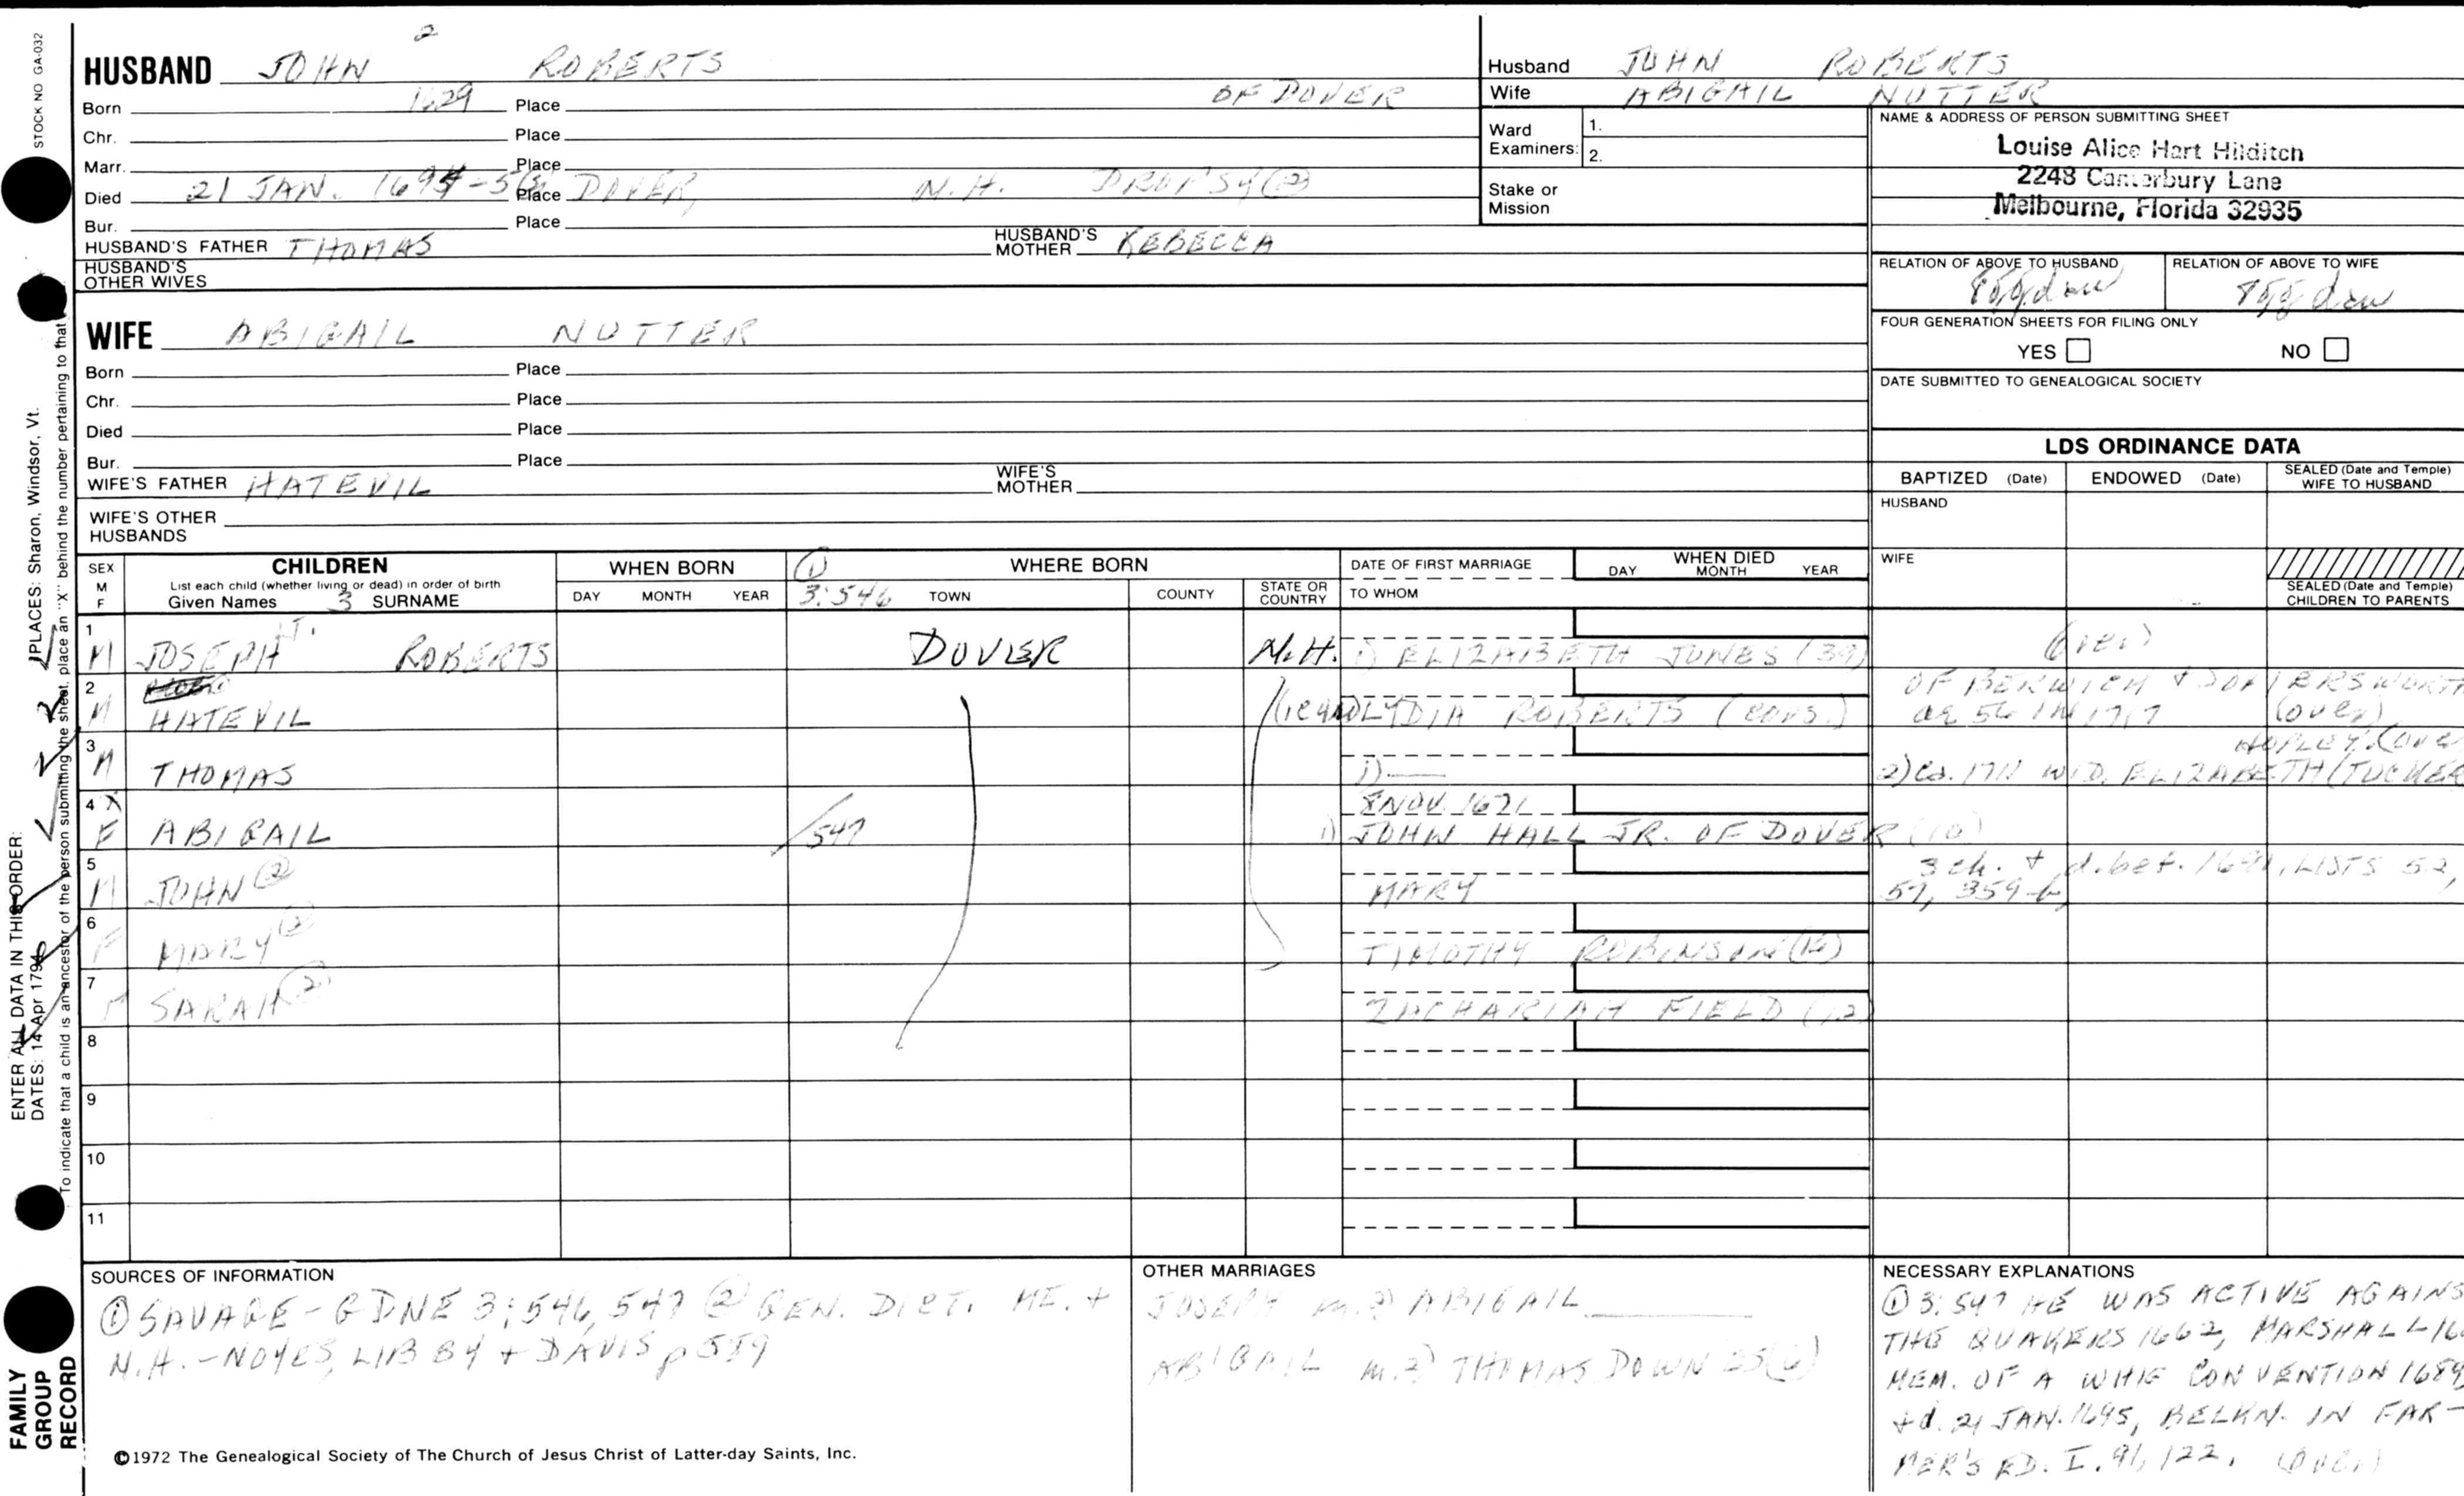 STOCK NO GA-032
2
HUSBAND JOHN ROBERTS
Born 1629 Place OF DOVER
Chr. Place
Marr. Place
Died 21 JAN. 1694-5 Place DOVER, N.H. DROPSY (2)
Bur. Place
HUSBAND'S FATHER THOMAS HUSBAND'S MOTHER REBECCA
HUSBAND'S OTHER WIVES
Husband JOHN ROBERTS
Wife ABIGAIL NUTTER
Ward Examiners: 1.
2.
Stake or Mission
NAME & ADDRESS OF PERSON SUBMITTING SHEET
Louise Alice Hart Hilditch
2248 Canterbury Lane
Melbourne, Florida 32935
RELATION OF ABOVE TO HUSBAND RELATION OF ABOVE TO WIFE
FOUR GENERATION SHEETS FOR FILING ONLY
YES NO
DATE SUBMITTED TO GENEALOGICAL SOCIETY
WIFE ABIGAIL NUTTER
Born Place
Chr. Place
Died Place
Bur. Place
WIFE'S FATHER HATEVIL WIFE'S MOTHER
WIFE'S OTHER HUSBANDS
LDS ORDINANCE DATA
BAPTIZED (Date) ENDOWED (Date) SEALED (Date and Temple) WIFE TO HUSBAND
HUSBAND
WIFE
SEALED (Date and Temple) CHILDREN TO PARENTS
SEX M F
CHILDREN
List each child (whether living or dead) in order of birth
Given Names 3 SURNAME
WHEN BORN
DAY MONTH YEAR
(1) 3:546
WHERE BORN
TOWN COUNTY STATE OR COUNTRY
DATE OF FIRST MARRIAGE
TO WHOM
WHEN DIED
DAY MONTH YEAR
1 M JOSEPH LT. ROBERTS DOVER N.H. 1) ELIZABETH JONES (39) (over)
2 M HATEVIL LYDIA ROBERTS (COUS.) OF BERWICK + SOMERSWORTH
56 IN 1717 (over)
3 M THOMAS 1) 2) ca. 1711 WID. ELIZABETH (TUCKER
4 X F ABIGAIL /547 8 NOV. 1671
1) JOHN HALL JR. OF DOVER (10)
5 M JOHN (2) MARY 3 ch. + d. bef. 1691, LISTS 52,
57, 359
6 F MARY (2) TIMOTHY ROBINSON (12)
7 F SARAH (2) ZACHARIAH FIELD (12)
8
9
10
11
SOURCES OF INFORMATION
(1) SAVAGE - GDNE 3:546, 547 (2) GEN. DICT. ME. +
N.H. - NOYES, LIBBY + DAVIS p 589
OTHER MARRIAGES
JOSEPH m. 2) ABIGAIL
ABIGAIL m. 2) THOMAS DOWN 25(6)
NECESSARY EXPLANATIONS
(1) 3:547 HE WAS ACTIVE AGAINS
THE QUAKERS 1662, MARSHALL
MEM. OF A WHIG CONVENTION 1689
+ d. 21 JAN. 1695, BELKN. IN FAR-
MER'S ED. I. 91, 122. (over)
©1972 The Genealogical Society of The Church of Jesus Christ of Latter-day Saints, Inc.
FAMILY GROUP RECORD
ENTER ALL DATA IN THIS ORDER:
DATES: 14 Apr 1794
PLACES: Sharon, Windsor, Vt.
To indicate that a child is an ancestor of the person submitting the sheet, place an "X" behind the number pertaining to that